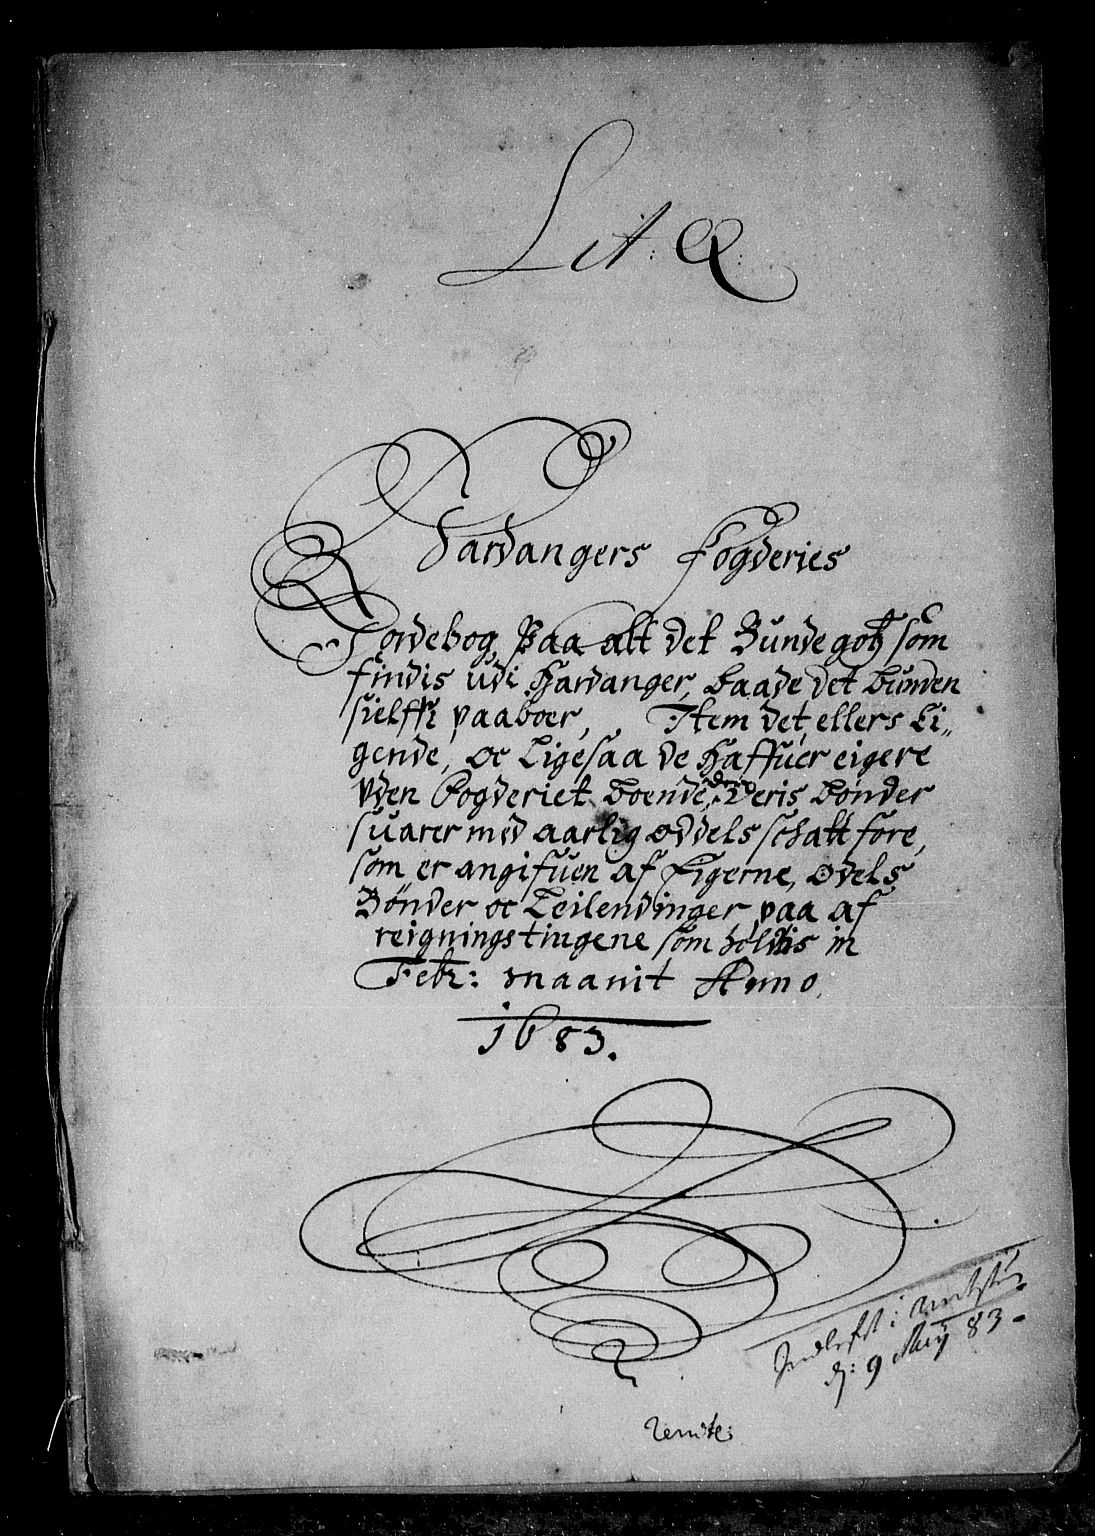 Lit: Q:
Hardangers Fogderies
Jordebog, Paa alt det Bundegotz som
findis udi Hardanger, baade det bunden
sielffr paaboer, Item det ellers Li„
gende, oc Ligesaa de haffuer eigere
Vden Fogderiet boende, der Deris bønder
suarer med aarlig oddels schatt fore,
som er angifuen af Eigerne, Odels
Bønder oc Leilendinger paa af
reigningstingene som holdtis in
Febr: maanit Anno.
1683.
Indlefst i
d: 9 Maij 83.